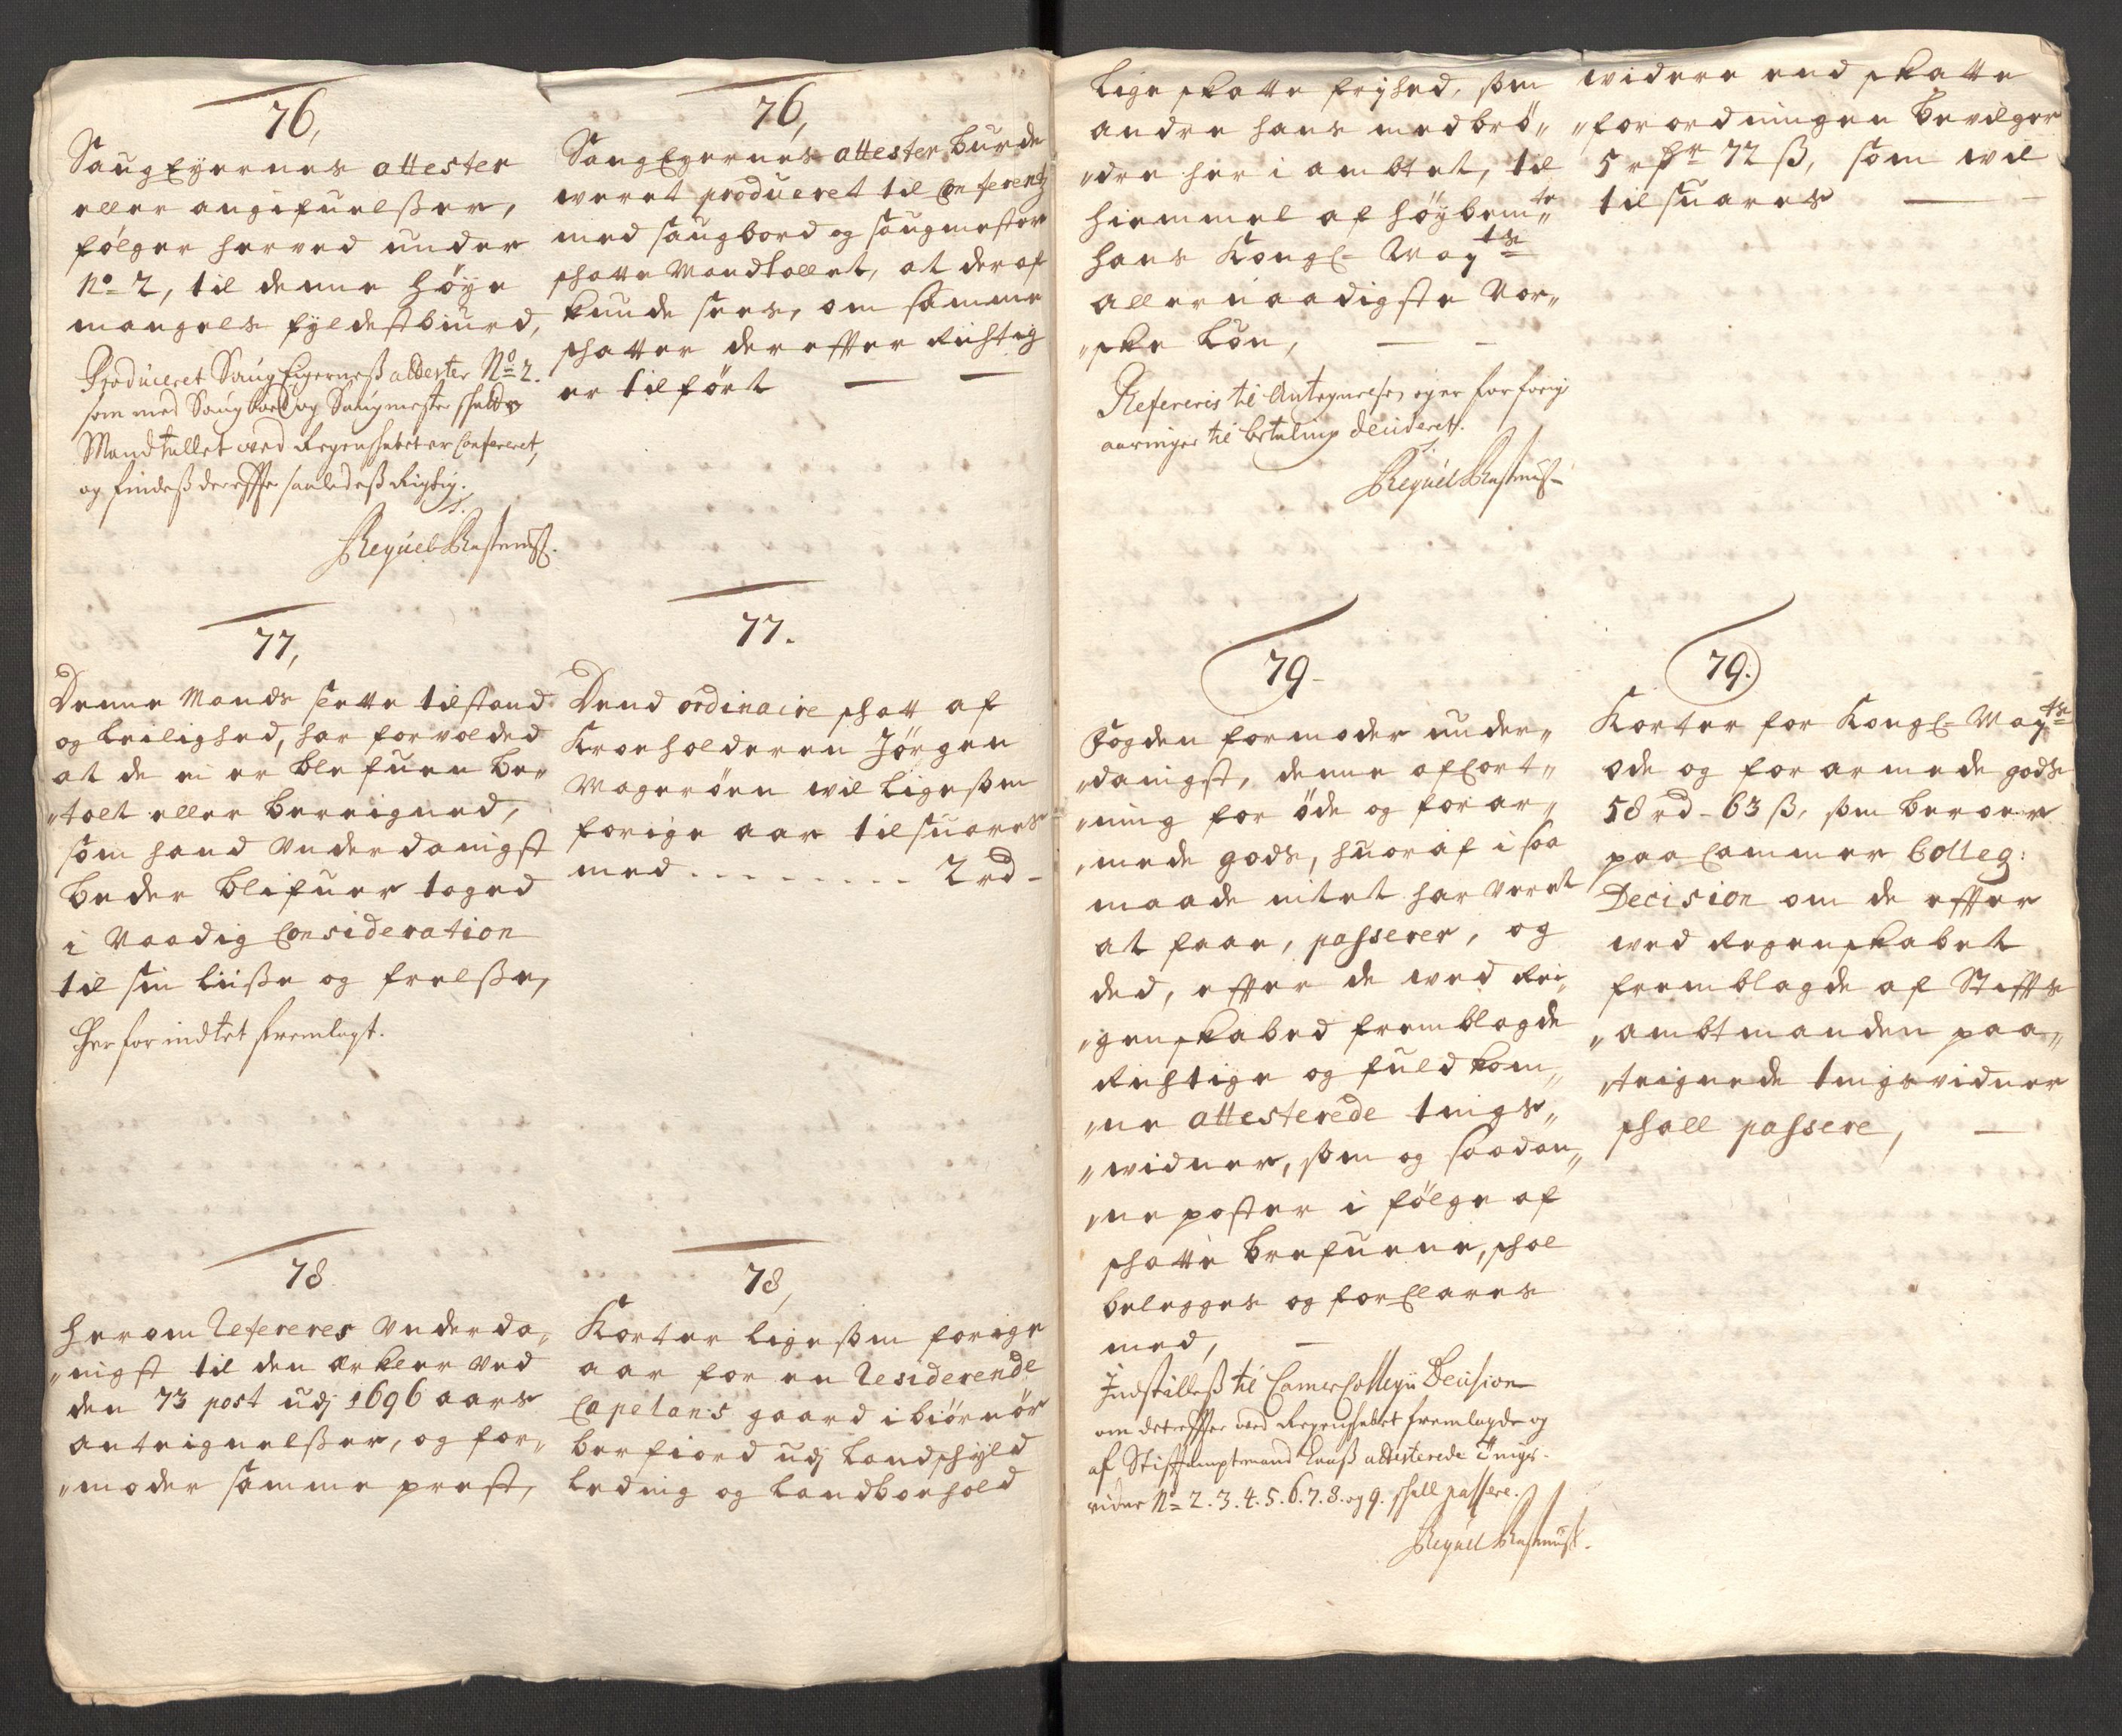 76,
Saug Eyernes attester
eller angifuelßer,
følger herved under
No 2, til denne høye
mangels fyldestbiurd,
Produceret Saug Eigerneß attester No 2.
som med Saugbord og Saugmester skatte
Mandtallet ved Regenskabet er Confereret,
og findeß derefter saaledeß Rigtig.
76,
Saug Egernes attester burde
weret produceret til Conferentz
med saugbord og saugmester
schatte Mandtallet, at deraf
kunde sees, om samme
schatter derefter Richtig
er tilført
77,
Denne Mands slette tilstand
og leilighed, har forvolded
at de ei er blefuen be„
„talt eller bereigned,
som hand Underdanigst
beder blifuer taged
i Naadig Consideration
til sin liiße og frelße,
Herfor indtet fremlagt.
77.
Dend ordinaire schatt af
Kroeholderen Jørgen
Magerøen wil ligesom
forige aar tilsuares
med - - - - - - - - 2 rd -
78
Herom Refereres Underda„
„nigst til den Erkler ved
den 73 post udj 1696 aars
anteignelßer, og for„
„moder samme prest,
78,
Korter ligesom forige
aar for en Residerende
Capelans gaard i biørnør
berfiord udj Landschyld
Leding og Landboehold
Lige skatte frjhed, som
andre hans medbrø„
„dre her i ambtet, til
hiemmel af høybemte
hans Kongl Mayts
allernaadigste Nor„
„ske Lou,
Refereris til Antegnelsen og er for forrig
aaringer til betaling decideret.
widere end skatte
„forordningen bevilger
5 rdr 72 ß, som wil
tilsuares
79
Fogden formoder under„
„danigst, denne afCort„
„ning for øde og forar„
„mede gods, huoraf i saa
maade intet har veret
at faae, passerer, og
ded, efter de wed Rei„
„genskabed fremblagde
Richtige og fuldkom„
„ne attesterede tings„
„widner, som og saadan„
„ne poster i følge af
schatte brefuene, schal
belegges og forClares
med,
Indstilleß til CamerCollegii Decision
om de derefter ved Regenskabet fremlagde og
af Stiftamptmand Kaaß attesterede Tings-
vidner No 2. 3. 4. 5. 6. 7. 8. og 9. skall passere.
79.
Korter for Kongl Mayts
øde og forarmede gods
58 rd - 63 ß, som beroer
paa Cammer Colleg:
Decision om de efter
wed Regenskabet
fremblagde af Stifts
„ambtmanden paa„
„teignede tingsvidner
schall passere,